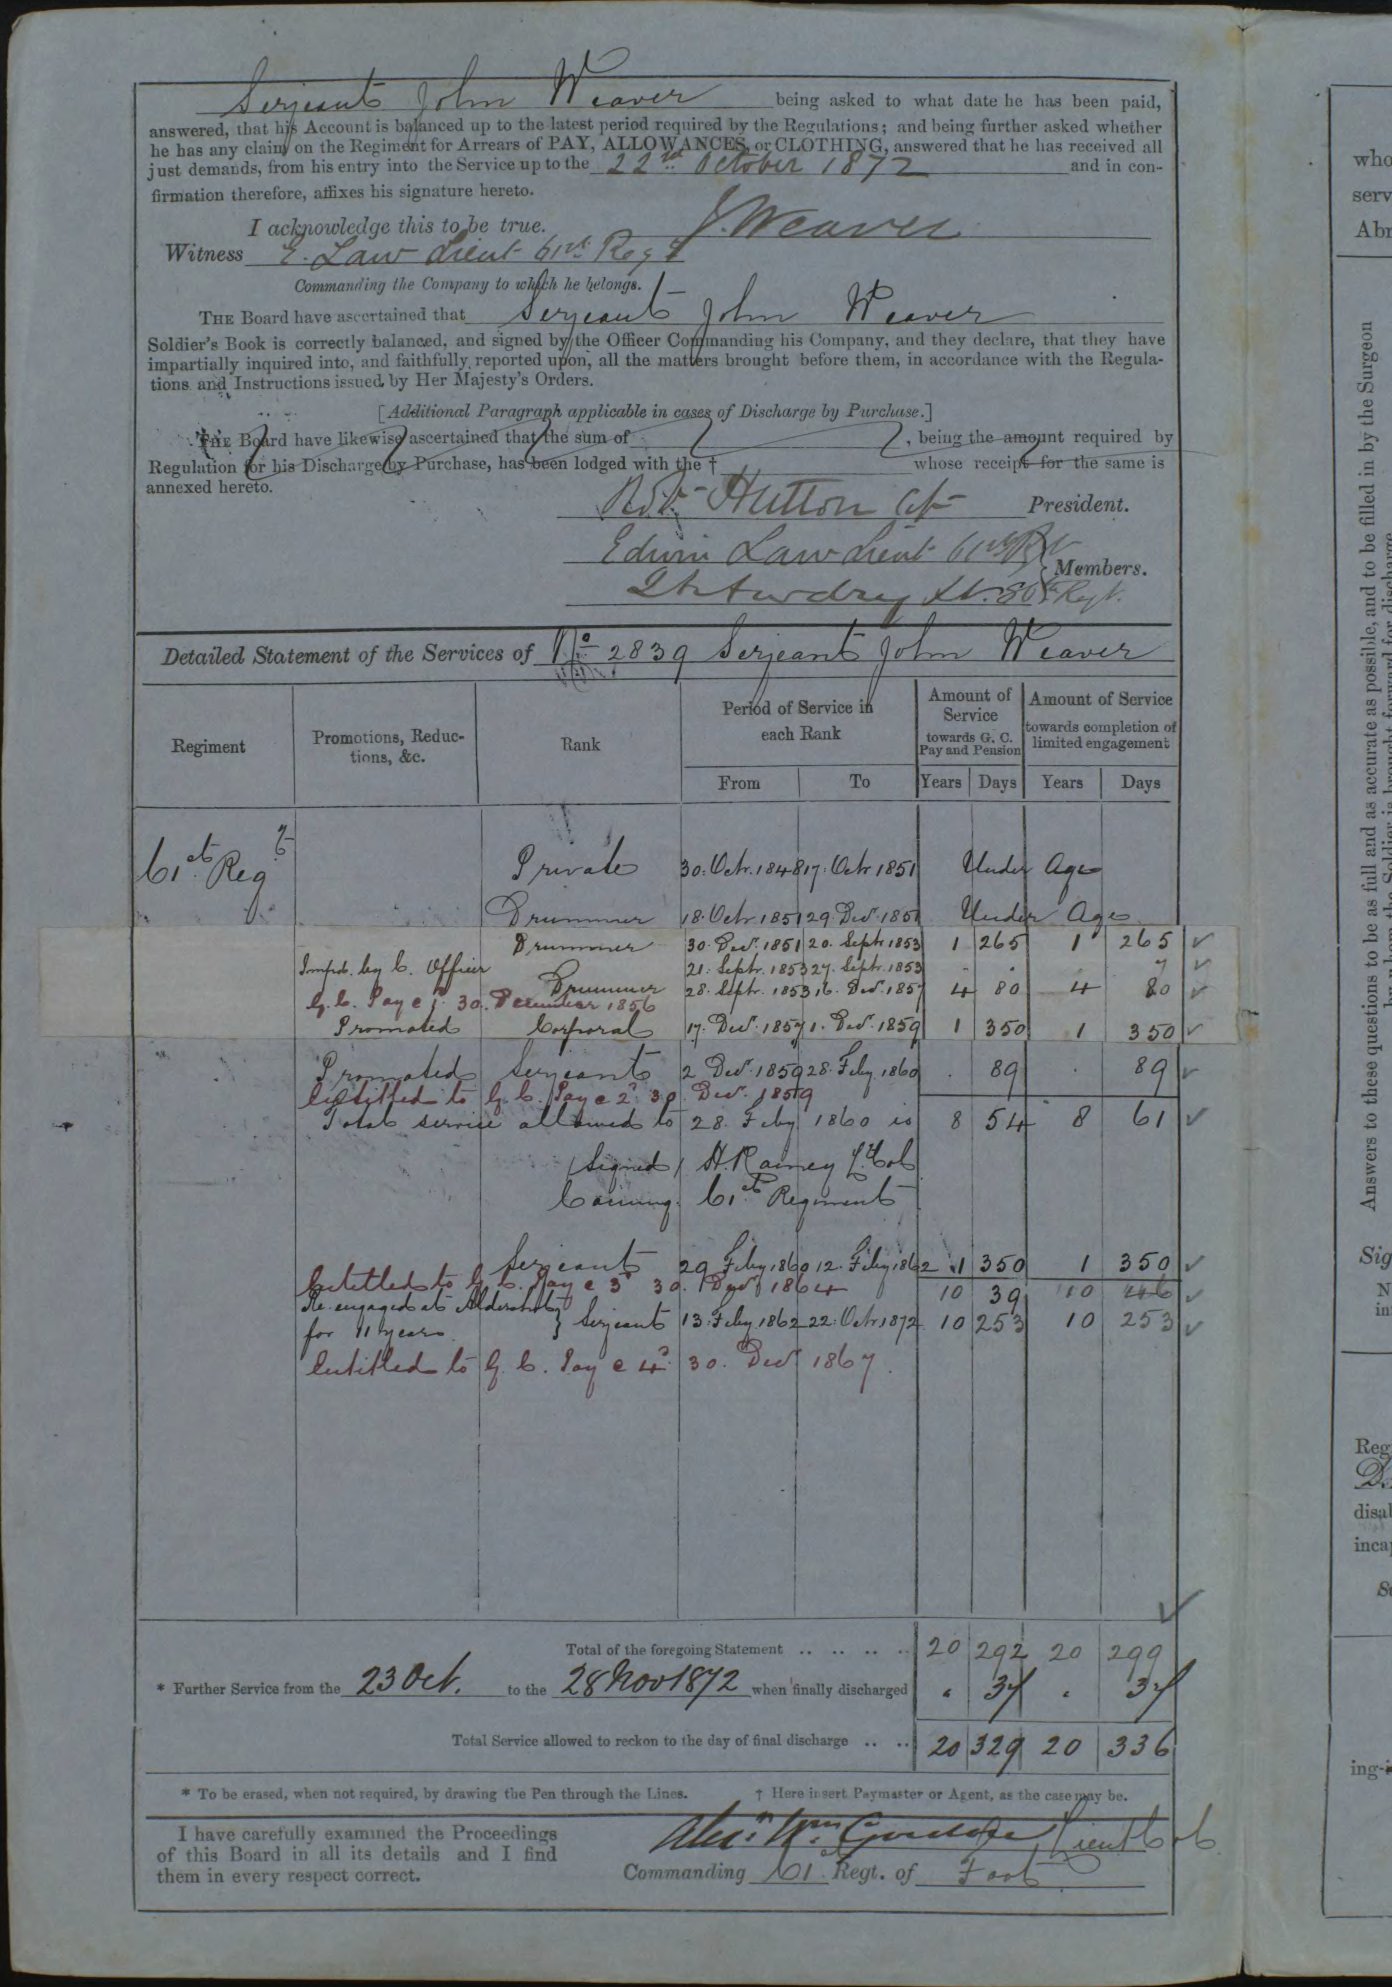 Serjeant John Weaver being asked to what date he has been paid,
answered, that his Account is balanced up to the latest period required by the Regulations; and being further asked whether
he has any claim on the Regiment for Arrears of PAY, ALLOWANCES, or CLOTHING, answered that he has received all
just demands, from his entry into the Service up to the 22nd October 1872 and in con-
firmation therefore, affixes his signature hereto.
I acknowledge this to be true. J. Weaver
Witness E. Law Lieut 61st Regt
Commanding the Company to which he belongs.
THE Board have ascertained that Serjeant John Weaver
Soldier's Book is correctly balanced, and signed by the Officer Commanding his Company, and they declare, that they have
impartially inquired into, and faithfully reported upon, all the matters brought before them, in accordance with the Regula-
tions and Instructions issued by Her Majesty's Orders.
[Additional Paragraph applicable in cases of Discharge by Purchase.]
THE Board have likewise ascertained that the sum of , being the amount required by
Regulation for his Discharge by Purchase, has been lodged with the † whose receipt for the same is
annexed hereto.
Hutton President.
Edwin Law Lieut 61st
Members.
Regt.
Detailed Statement of the Services of No 2839 Serjeant John Weaver
Regiment Promotions, Reduc- tions, &c. Rank Period of Service in each Rank Amount of Service towards G. C. Pay and Pension Amount of Service towards completion of limited engagement
From To Years Days Years Days
61st Regt Private 30. Octr. 1848 17. Octr 1851 Under Age
Drummer 18. Octr 1851 29. Decr. 1851 Under Age
Drummer 30. Decr. 1851 20. Septr 1853 1 265 1 265
Impd. by C. Officer 21. Septr. 1853 27. Septr. 1853 . . . 7
Drummer 28. Septr. 1853 16. Decr. 1857 4 80 4 80
G. C. Pay @ 1d. 30. December 1856
Promoted Corporal 17. Decr. 1857 1. Decr. 1859 1 350 1 350
Promoted Serjeant 2 Decr. 1859 28. Feby. 1860 . 89 . 89
Entitled to G. C. Pay @ 2d 30. Decr. 1859
Total service allowed to 28. Feby 1860 is 8 54 8 61
(Signed) H. Ramey Lt. Col
Commg. 61st Regiment
Serjeant 29 Feby 1860 12. Feby 1862 1 350 1 350
Entitled to G. C. Pay @ 3d 30. Decr 1864
10 39 10 46
Re-engaged at Aldershot
for 11 years. } Serjeant 13. Feby 1862 22. Octr. 1872 10 253 10 253
Entitled to G. C. Pay @ 4d. 30. Decr 1867.
Total of the foregoing Statement .. .. .. .. 20 292 20 299
* Further Service from the 23 Oct. to the 28 Nov 1872 when finally discharged . 37 . 37
Total Service allowed to reckon to the day of final discharge .. .. 20 329 20 336
* To be erased, when not required, by drawing the Pen through the Lines. † Here insert Paymaster or Agent, as the case may be.
I have carefully examined the Proceedings
of this Board in all its details and I find
them in every respect correct.
Lieut Col
Commanding 61st Regt. of Foot
who
serv
Abr
Answers to these questions to be as full and as accurate as possible, and to be filled in by the Surgeon
Sig
N
in
Reg
D.
disal
incap
S
ing-i